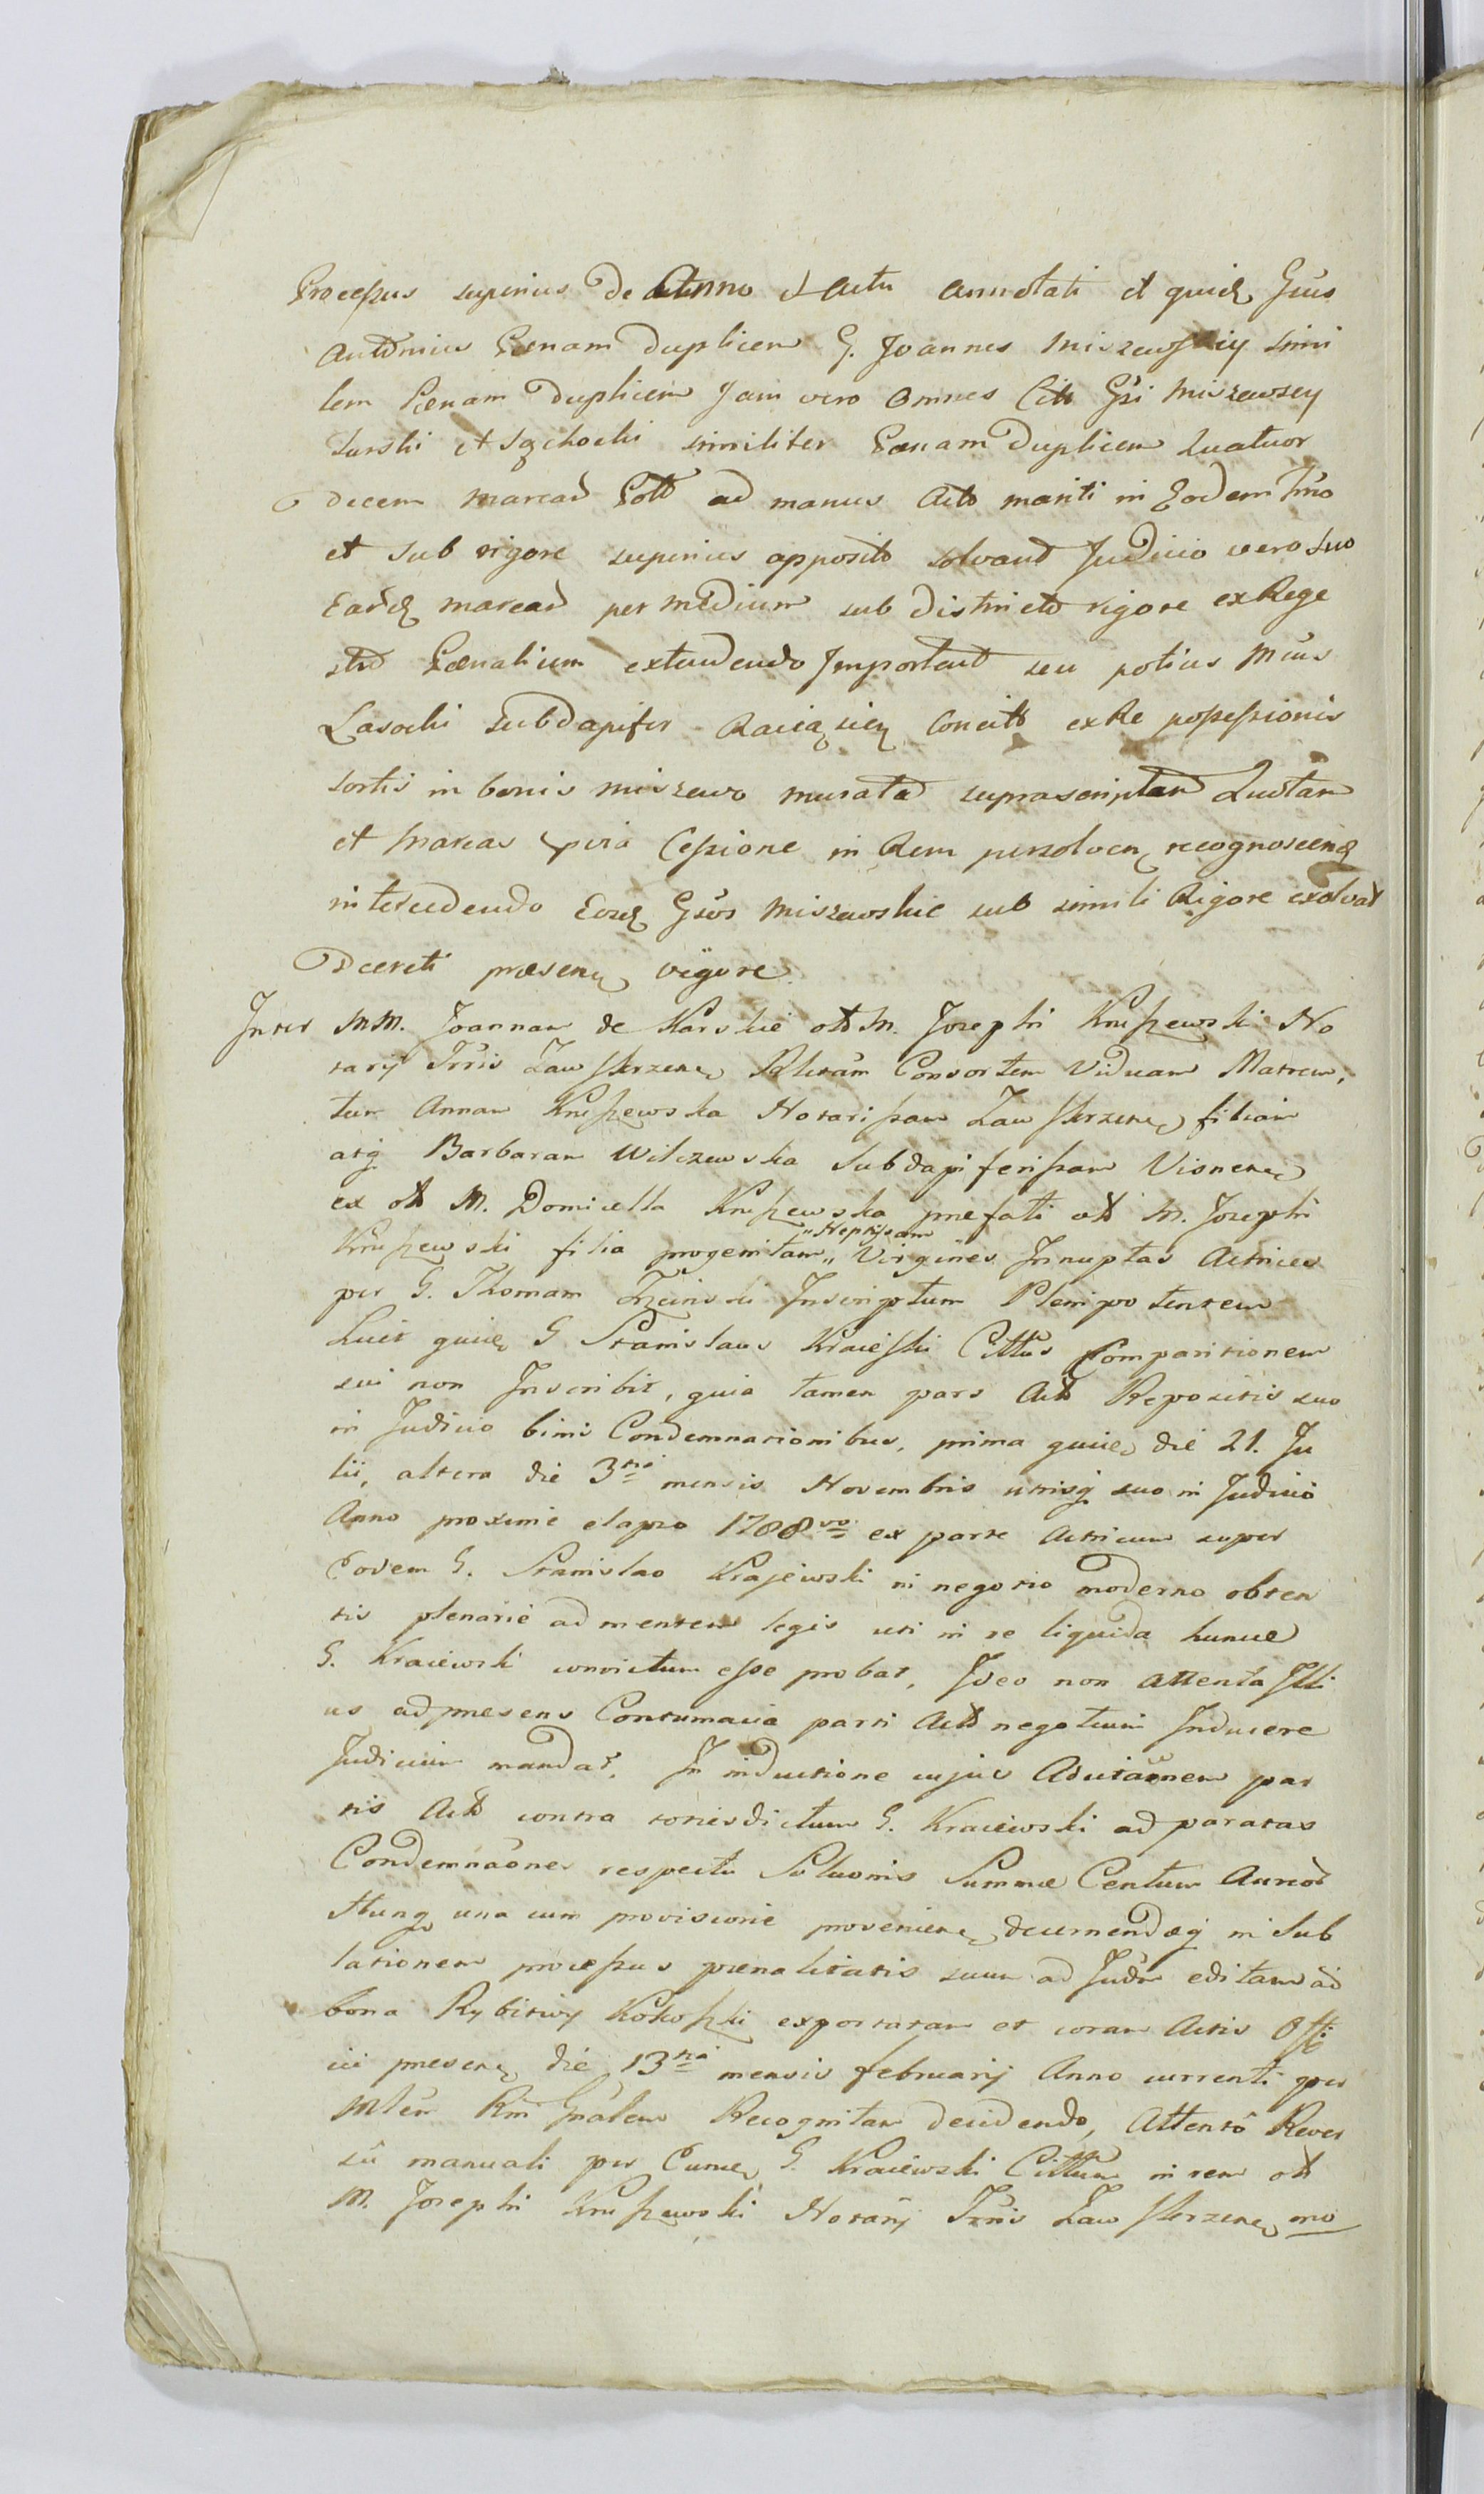 Processus superius de Anno et Actu annotati et quidē Gsus
Antonius Pænam duplicem G. Joannes Miszewskiy simi
lem Pœnam Duplicem Jam vero omnes Citti Gsi Miszewscy
Turski et Szchocki similiter Pœnam Duplicem Quatuor
decem marcas Pott ad manus Acto mariti in Eodem Tmo
et sub rigore superius apposito solvant Judicio vero suo
Easdē marcas per medium sub districto rigore ex Rege
stro Pœnalium extendendo Importent seu potius Mcus
Lasocki Subdapifer Raciąsień Concitt ex Re possessionis
sortis in bonis Miszewo Murata suprascriptam Quotam
et marcas pvia Cessione in Rem persolven recognoscenđ
intercedendo Eosđ Gsos Miszewskie sub simili Rigore exolvat
Decreti præsen vigore.
Inter MM. Joannam de Karskie olt M. Josephi Kruszewski No
tarÿ Trris Zawskrzen Relictam Consortem Viduam Matrem,
tum Annam Kruszewska Notarissam Zawskrzen filiam
atq Barbaram Wilczewska Subdapiferissam Visnen
ex olt M. Domicella Kruszewska præfati olt M. Josephi
Kruszewski filia progenitam „Neptisam„ Virgines Innuptas Actrices
per G. Thomam Trzcinski Inscriptum Plenipotentem
Licet quidē G Stanislaus Kraieski Cittus Comparitionem
sui non Inscribit, quia tamen pars Act Repositis suo
in Judicio binis Condemnationibus, prima quidē die 21. Ju
lii, altera die 3tia mensis Novembris utrisq suo in Judicio
Anno proxime elapso 1788vo ex parte Actricum super
Eodem G. Stanislao Krajewski in negotio moderno obten
tis plenarie ad mentem legis uti in re liquida hunce
G. Kraiewski convictum esse probat, Ideo non attenta Illi
us ad præsens Contumacia parti Act negotium Inducere
Judicium mandat. In inductione cujus Acutaönem par
tis Act contra totiesdictum G. Kraiewski ad paratas
Condemnaönes respectu Solvonis Summæ Centum Aureor
Hung una cum provisione provenien decernendæq in Sub
lationem processus pœnalitatis suum ad Judm editam ad
bona Rybitwy Kokoszki exportatam et coram Actis Offi
cii præsen die 13tia mensis februarÿ Anno currenti per
Mlem Rni Gnalem Recognitam decidendo, Attento Rever
su manuali per Eundē G. Kraiewski Cittum in rem olt
M. Josephi Kruszewski Notarÿ Trris Zawskrzen mo